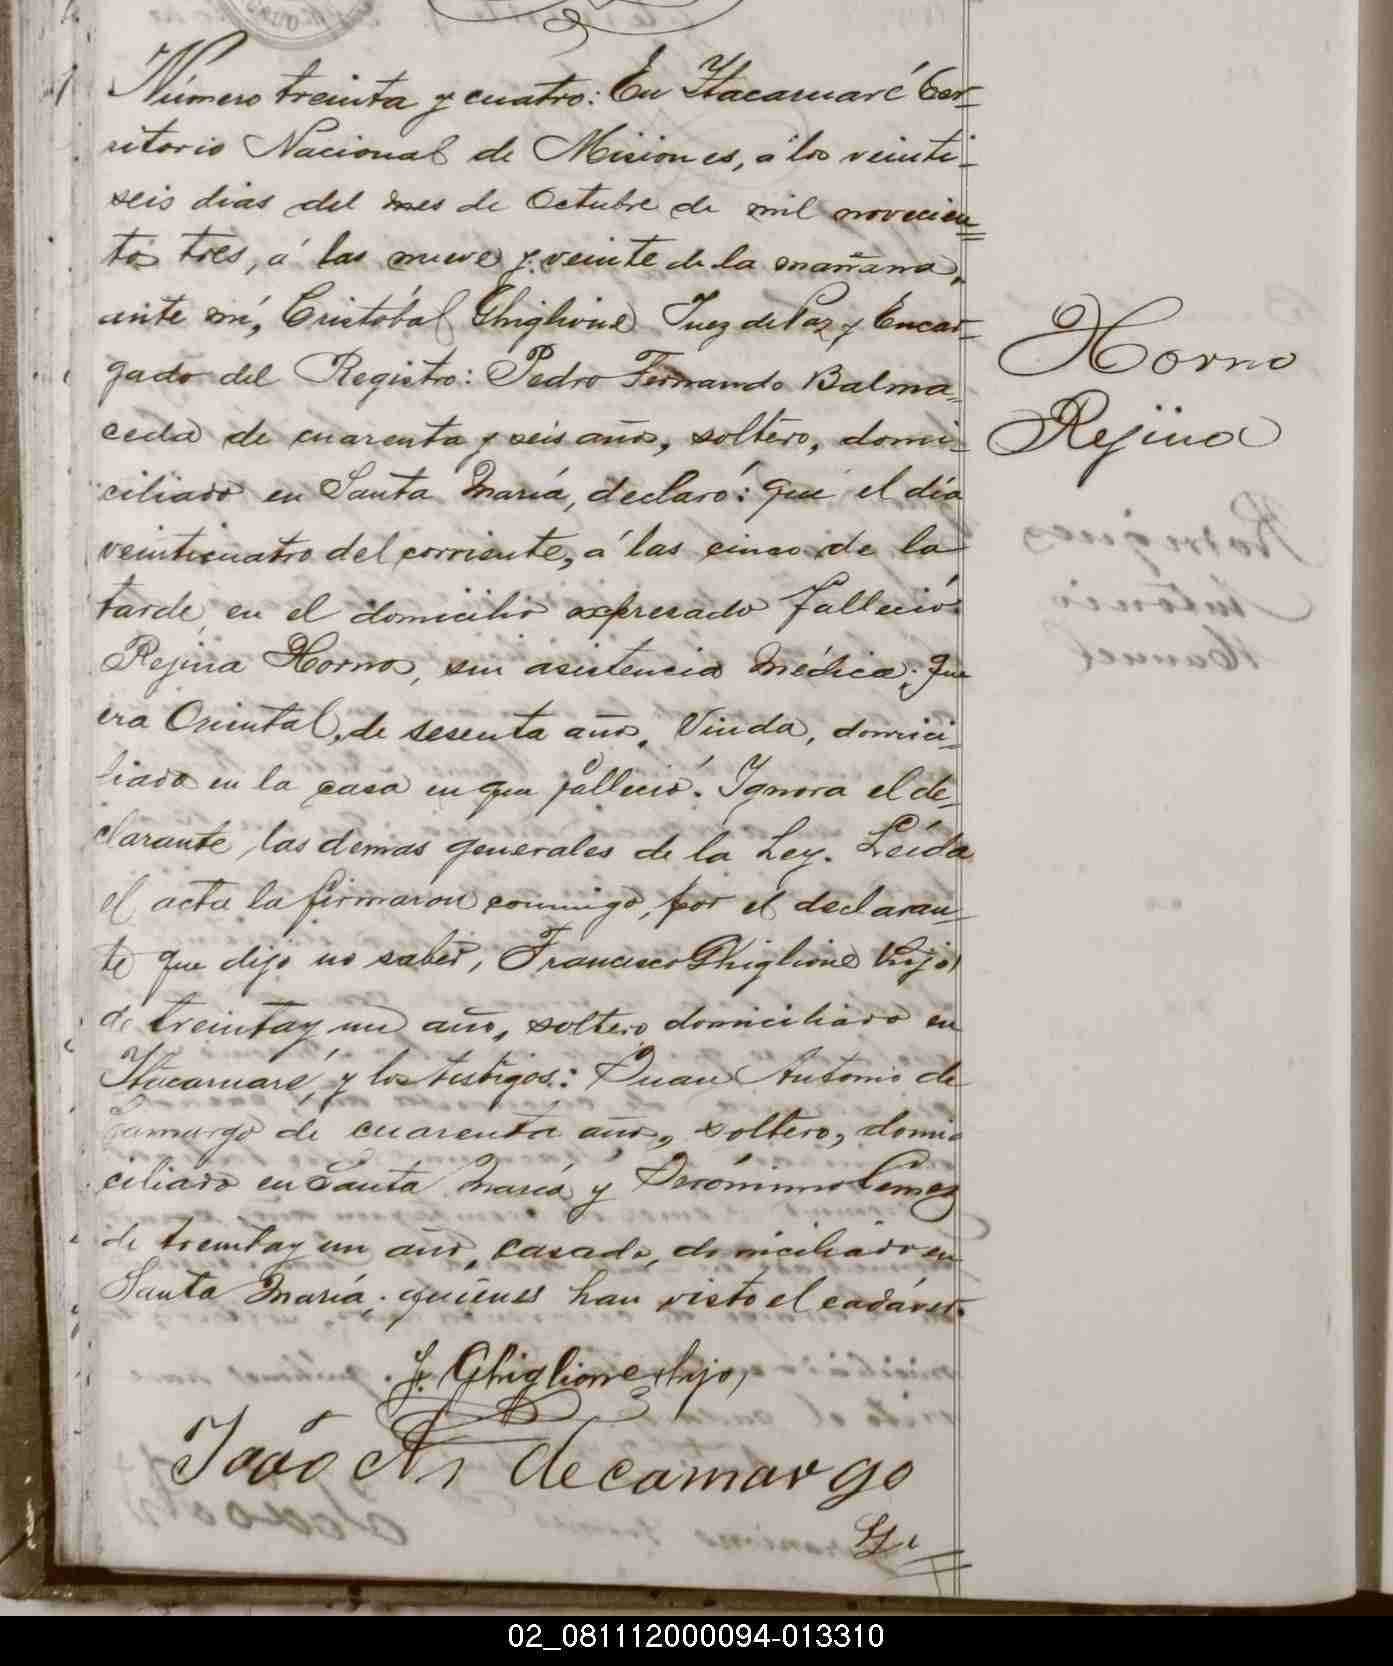 Número treinta y cuatro: En Itacaruaré Ter-
ritorio Nacional de Misiones, á los veinti-
seis dias del mes de Octubre de mil novecien-
tos tres, á las nueve y veinte de la mañana,
ante mí, Cristóbal Ghiglione Juez de Paz y Encar-
gado del Registro: Pedro Fernando Balma-
ceda de cuarenta y seis años, soltero, domi-
ciliado en Santa María, declaró: que el día
veinticuatro del corriente, á las cinco de la
tarde, en el domicilio expresado falleció
Rejina Horno, sin asistencia médica; que
era Oriental, de sesenta años, Viuda, domici-
liada en la casa en que falleció. Ignora el de-
clarante, las demas generales de la Ley. Leída
el acta la firmaron conmigo, por el declaran-
te que dijo no saber, Francisco Ghiglione hijo,
de treinta y un años, soltero domiciliado en
Itacaruaré, y los testigos: Juan Antonio de
Camargo de cuarenta años, soltero, domi-
ciliado en Santa María y Jerónimo Lemes
de treinta y un años, casado, domiciliado en
Santa María, quienes han visto el cadáver.
F. Ghiglione hijo,
João An decamargo
Horno
Rejina
02_081112000094-013310